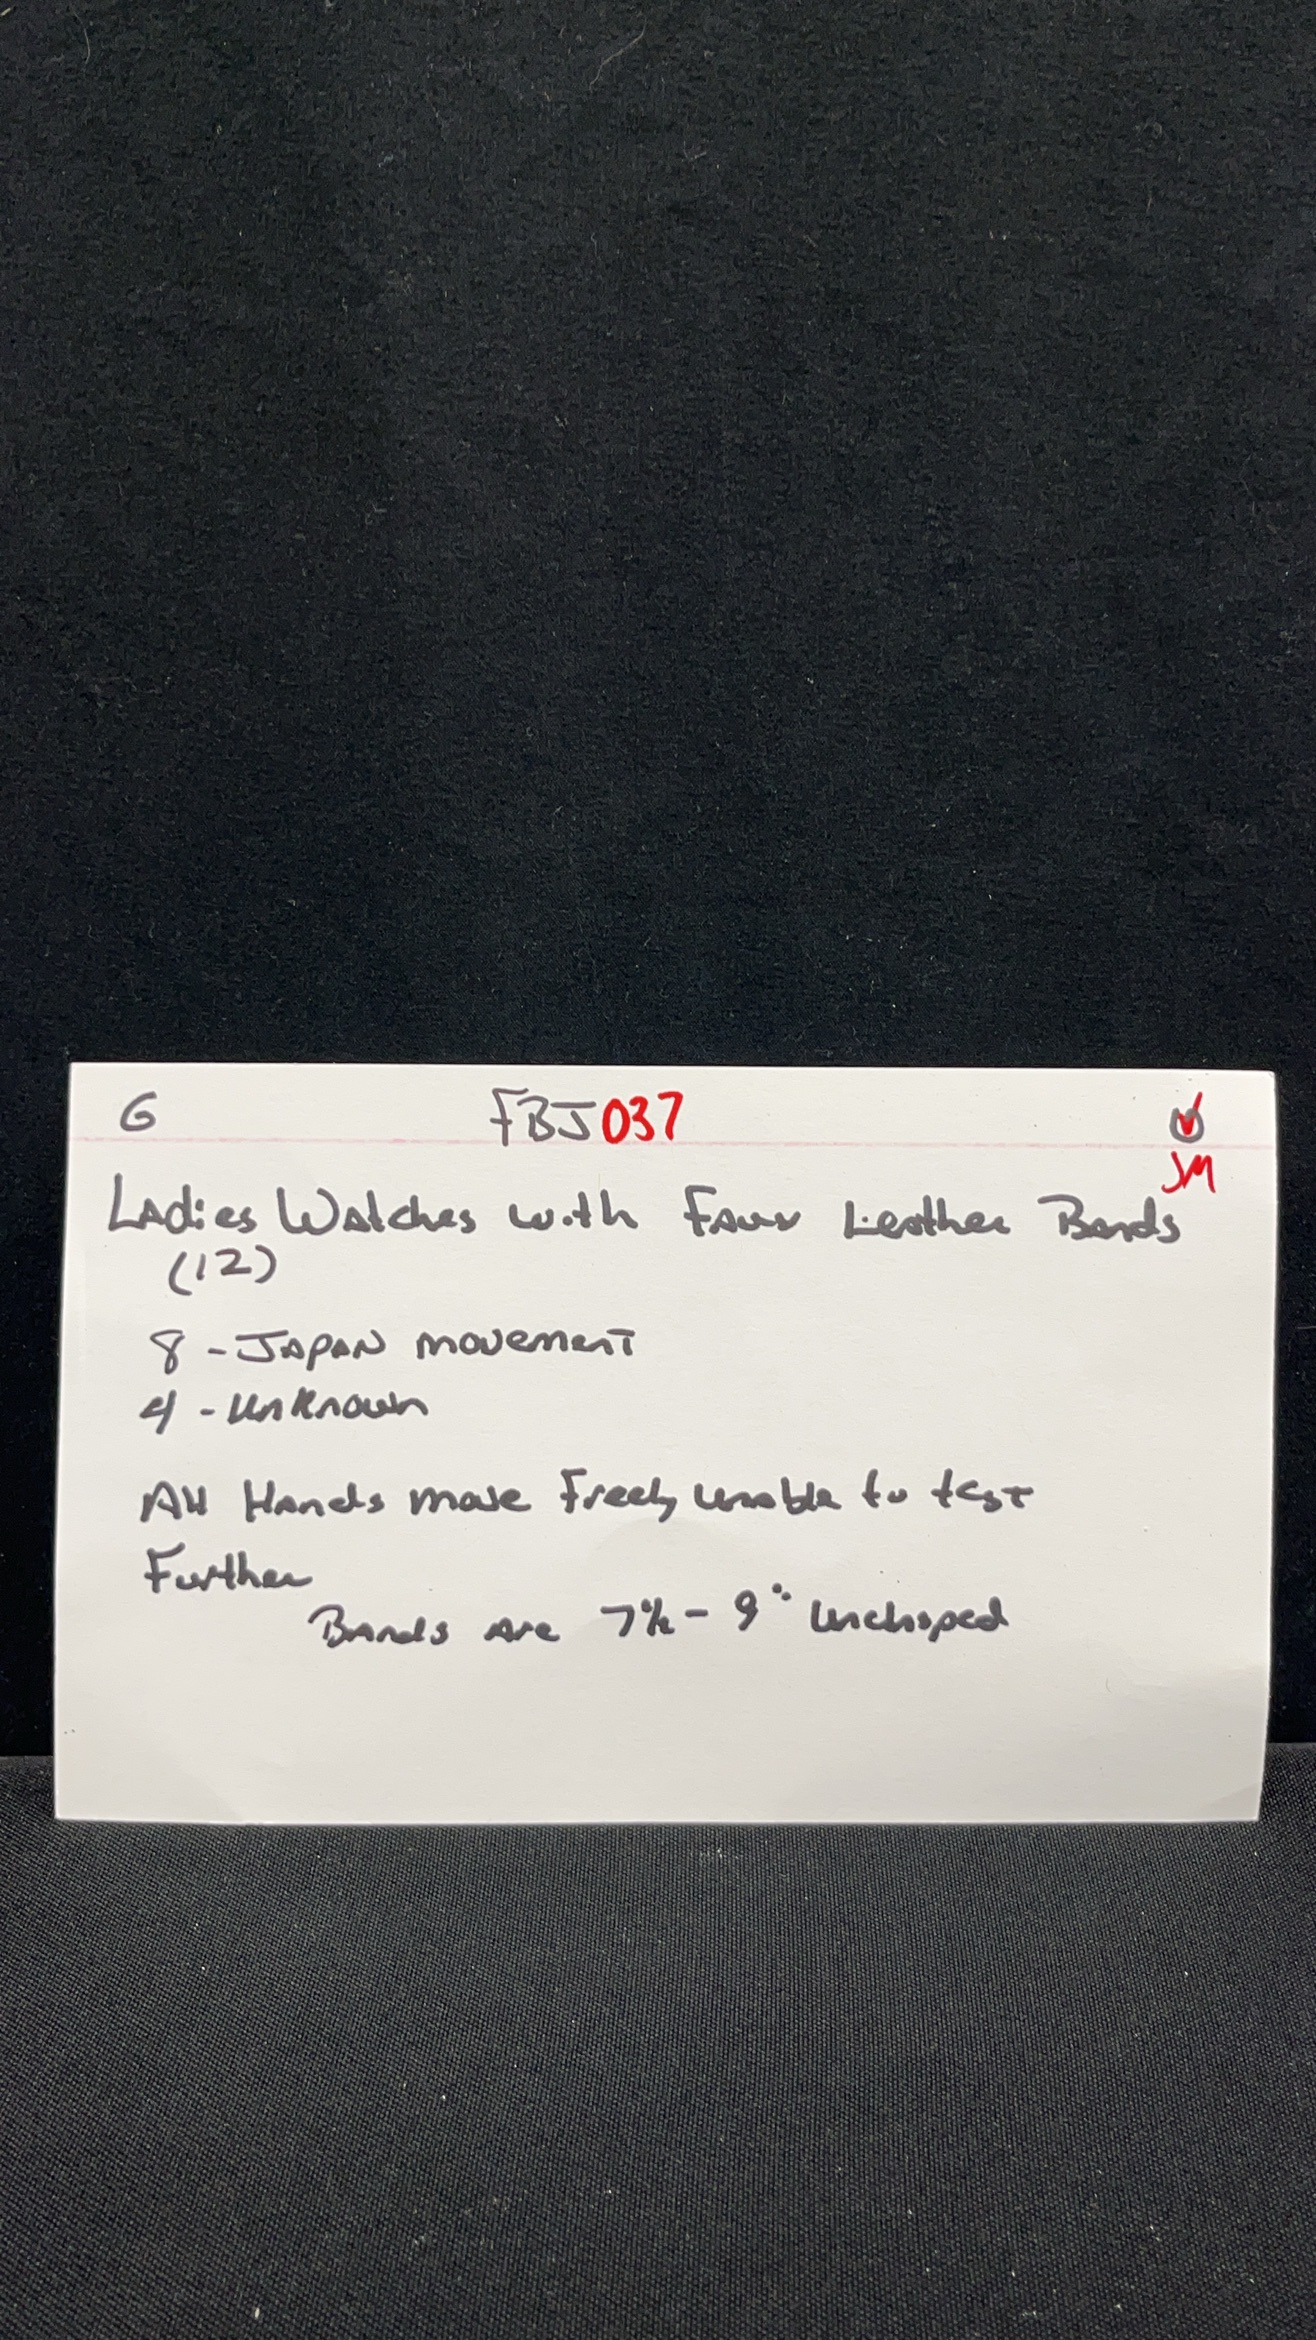 G FBJ037
JM
Ladies Watches with Faux Leather Bands
(12)
8 - Japan movement
4 - Unknown
All Hands move Freely unable to test
Further
Bands are 7½ - 9" Unclasped